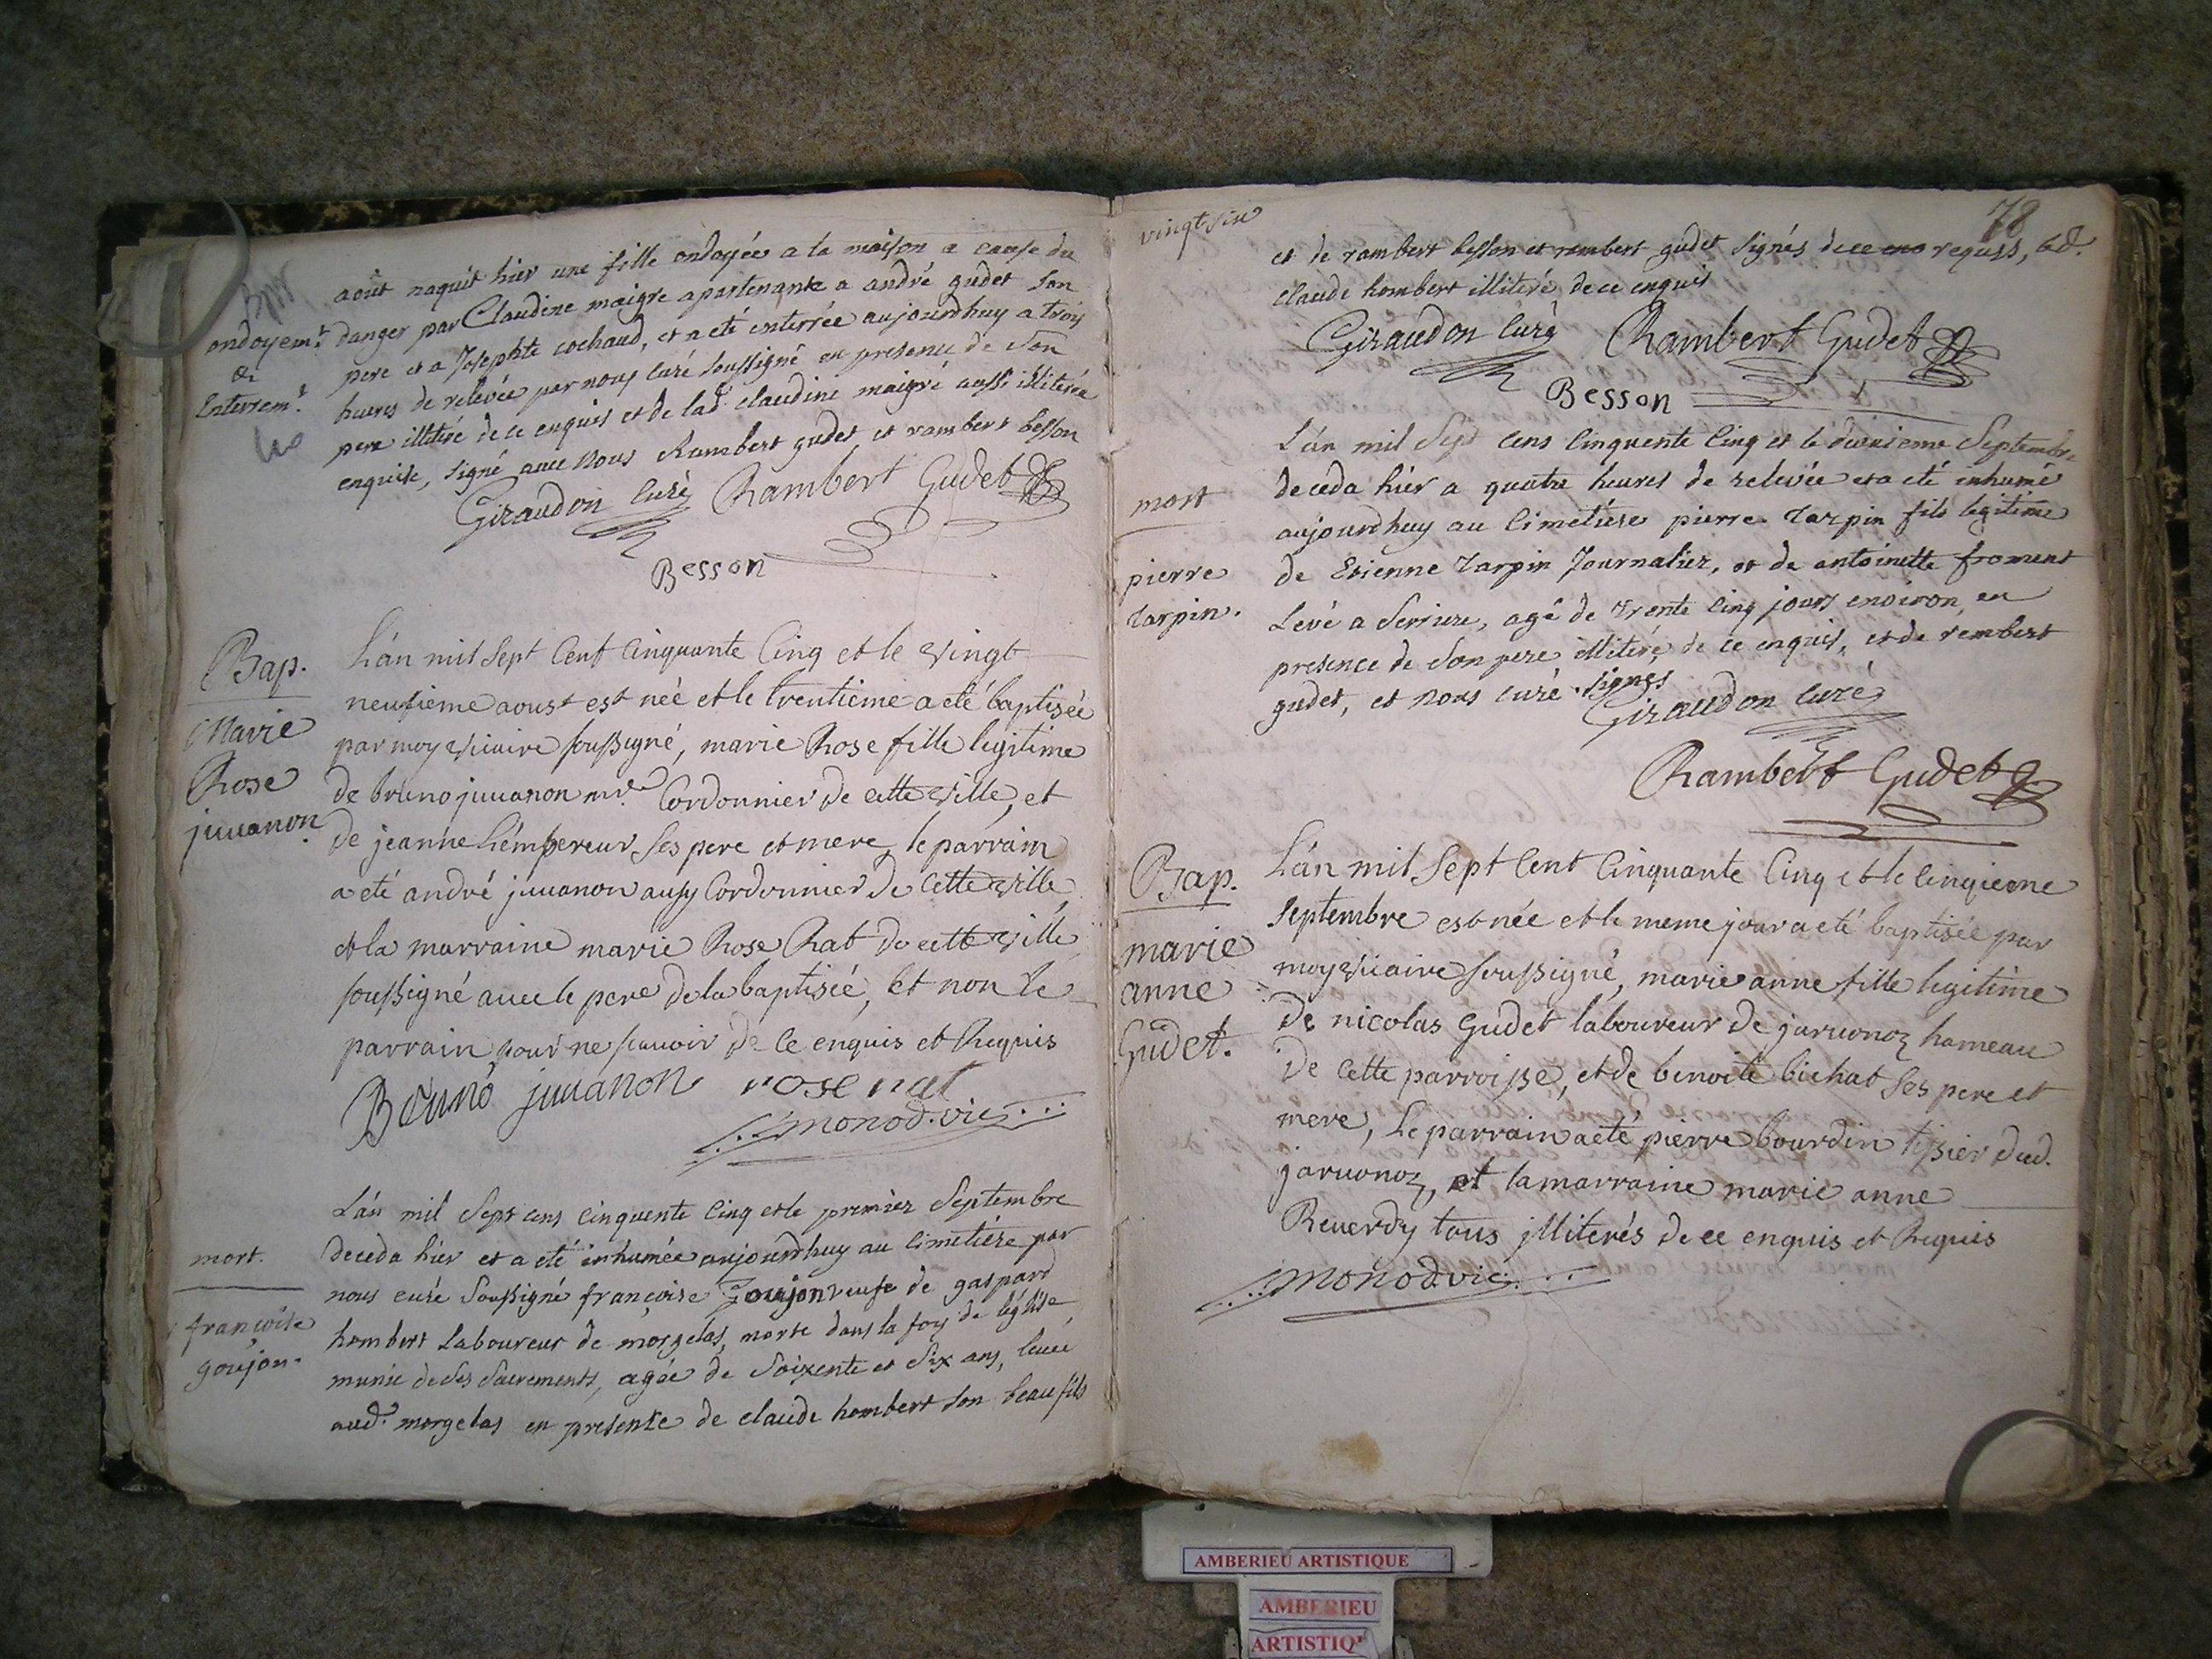 août naquit hier une fille ondoyée a la maison a cause du
ondoyemt. danger par Claudine maigre apartenante a andré gudet son
&
Enterremt.
pere et a Josephte cochaud, et a eté enterrée aujourdhuy a trois
heures de relevée par nous curé soussigné en presence de son
pere illitere de ce enquis et de lad. claudine maigre aussi illiterée
enquise, signé avec nous Rambert gudet et rambert besson
Giraudon curé Rambert Gudet
Besson
Bap.
Marie
Rose
juuanon.
L'an mil sept cent cinquante cinq et le vingt
neufieme aoust est née et le trentieme a eté baptisée
par moy vicaire soussigné, marie Rose fille legitime
de bruno juuanon mre. Cordonnier de cette ville, et
de jeanne L'empereur ses pere et mere, le parrain
a eté andré juuanon aussy Cordonnier de cette ville,
et la marraine marie Rose Rat de cette ville
soussigné avec le pere de la baptisée, et non le
parrain pour ne scauoir de ce enquis et Requis
Bruno juuanon rose rat
monod. vic.
mort.
francoise
goujon.
L'an mil sept cens cinquente cinq et le premier septembre
deceda hier et a eté inhumée aujourdhuy au cimetiére par
nous curé soussigné françoise Goujon veufe de gaspard
hombert Laboureur de morgelas, morte dans la foy de léglise,
munie de ses sacrements, agée de soixente et six ans, levee
aud. morgelas en presence de claude hombert son beau fils
vingt six
78
et de rambert besson et rembert gudet signés de ce requis, led.
claude hombert illiteré de ce enquis
Giraudon curé Rambert Gudet
Besson
mort
pierre
tarpin.
L'an mil sept cens cinquente cinq et le deuxieme septembre
deceda hier a quatre heures de relevée et a eté inhumé
aujourdhuy au cimetiére pierre tarpin fils legitime
de Etienne tarpin Journalier, et de antoinette froment
Levé a serriere, agé de trente cinq jours environ en
presence de son pere illiteré de ce enquis, et de rembert
gudet, et nous curé signés
Giraudon curé
Rambert Gudet
Bap.
marie
anne
Gudet.
L'an mil sept cent cinquante cinq et le cinqieme
septembre est née et le meme jour a eté baptisée par
moy vicaire soussigné, marie anne fille legitime
de nicolas Gudet laboureur de jaruonoz hameau
de cette parroisse, et de benoite bichat ses pere et
mere, Le parrain a eté pierre bourdin tissier dud.
jaruonoz, et la marraine marie anne
Reuerdy tous illiterés de ce enquis et Requis
monod. vic.
AMBERIEU ARTISTIQUE
AMBERIEU
ARTISTIQ